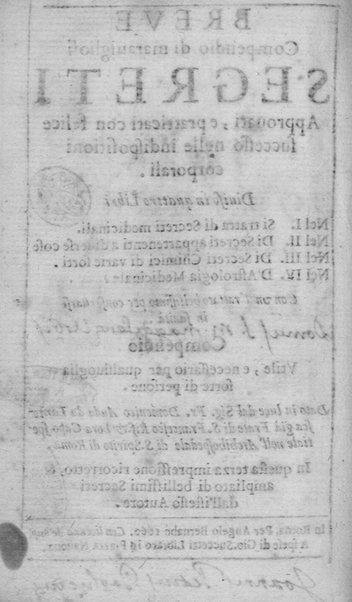 BREVE
Compendio di marauigliosi
SEGRETI
Approuati, e pratticati con felice
successo nelle indispositioni
corporali.
Diuiso in quattro Libri
Nel I. Si tratta di Secreti medicinali.
Nel II. Di Secreti appartenenti a diuerse cose
Nel III. Di Secreti Chimici di varie sorti.
Nel IV. D'Astrologia Medicinale.
Con vn Trattato bellissimo per conseruarsi
in sanità.
Compendio
Vtile, e necessario per qualsiuoglia
sorte di persone.
Dato in luce dal Sig. Fr. Domenico Auda da
già Frate di S. Francesco
nell'Archiospedale di S. Spirito di Roma,
In questa terza impressione ricorretto, &
ampliato di bellissimi Secreti
dall'istesso Autore.
In Roma, Per Angelo Bernabò 1660. Con licenza de' Sup.
A spese di Gio. Succetti Libraro in Piazza Nauona.